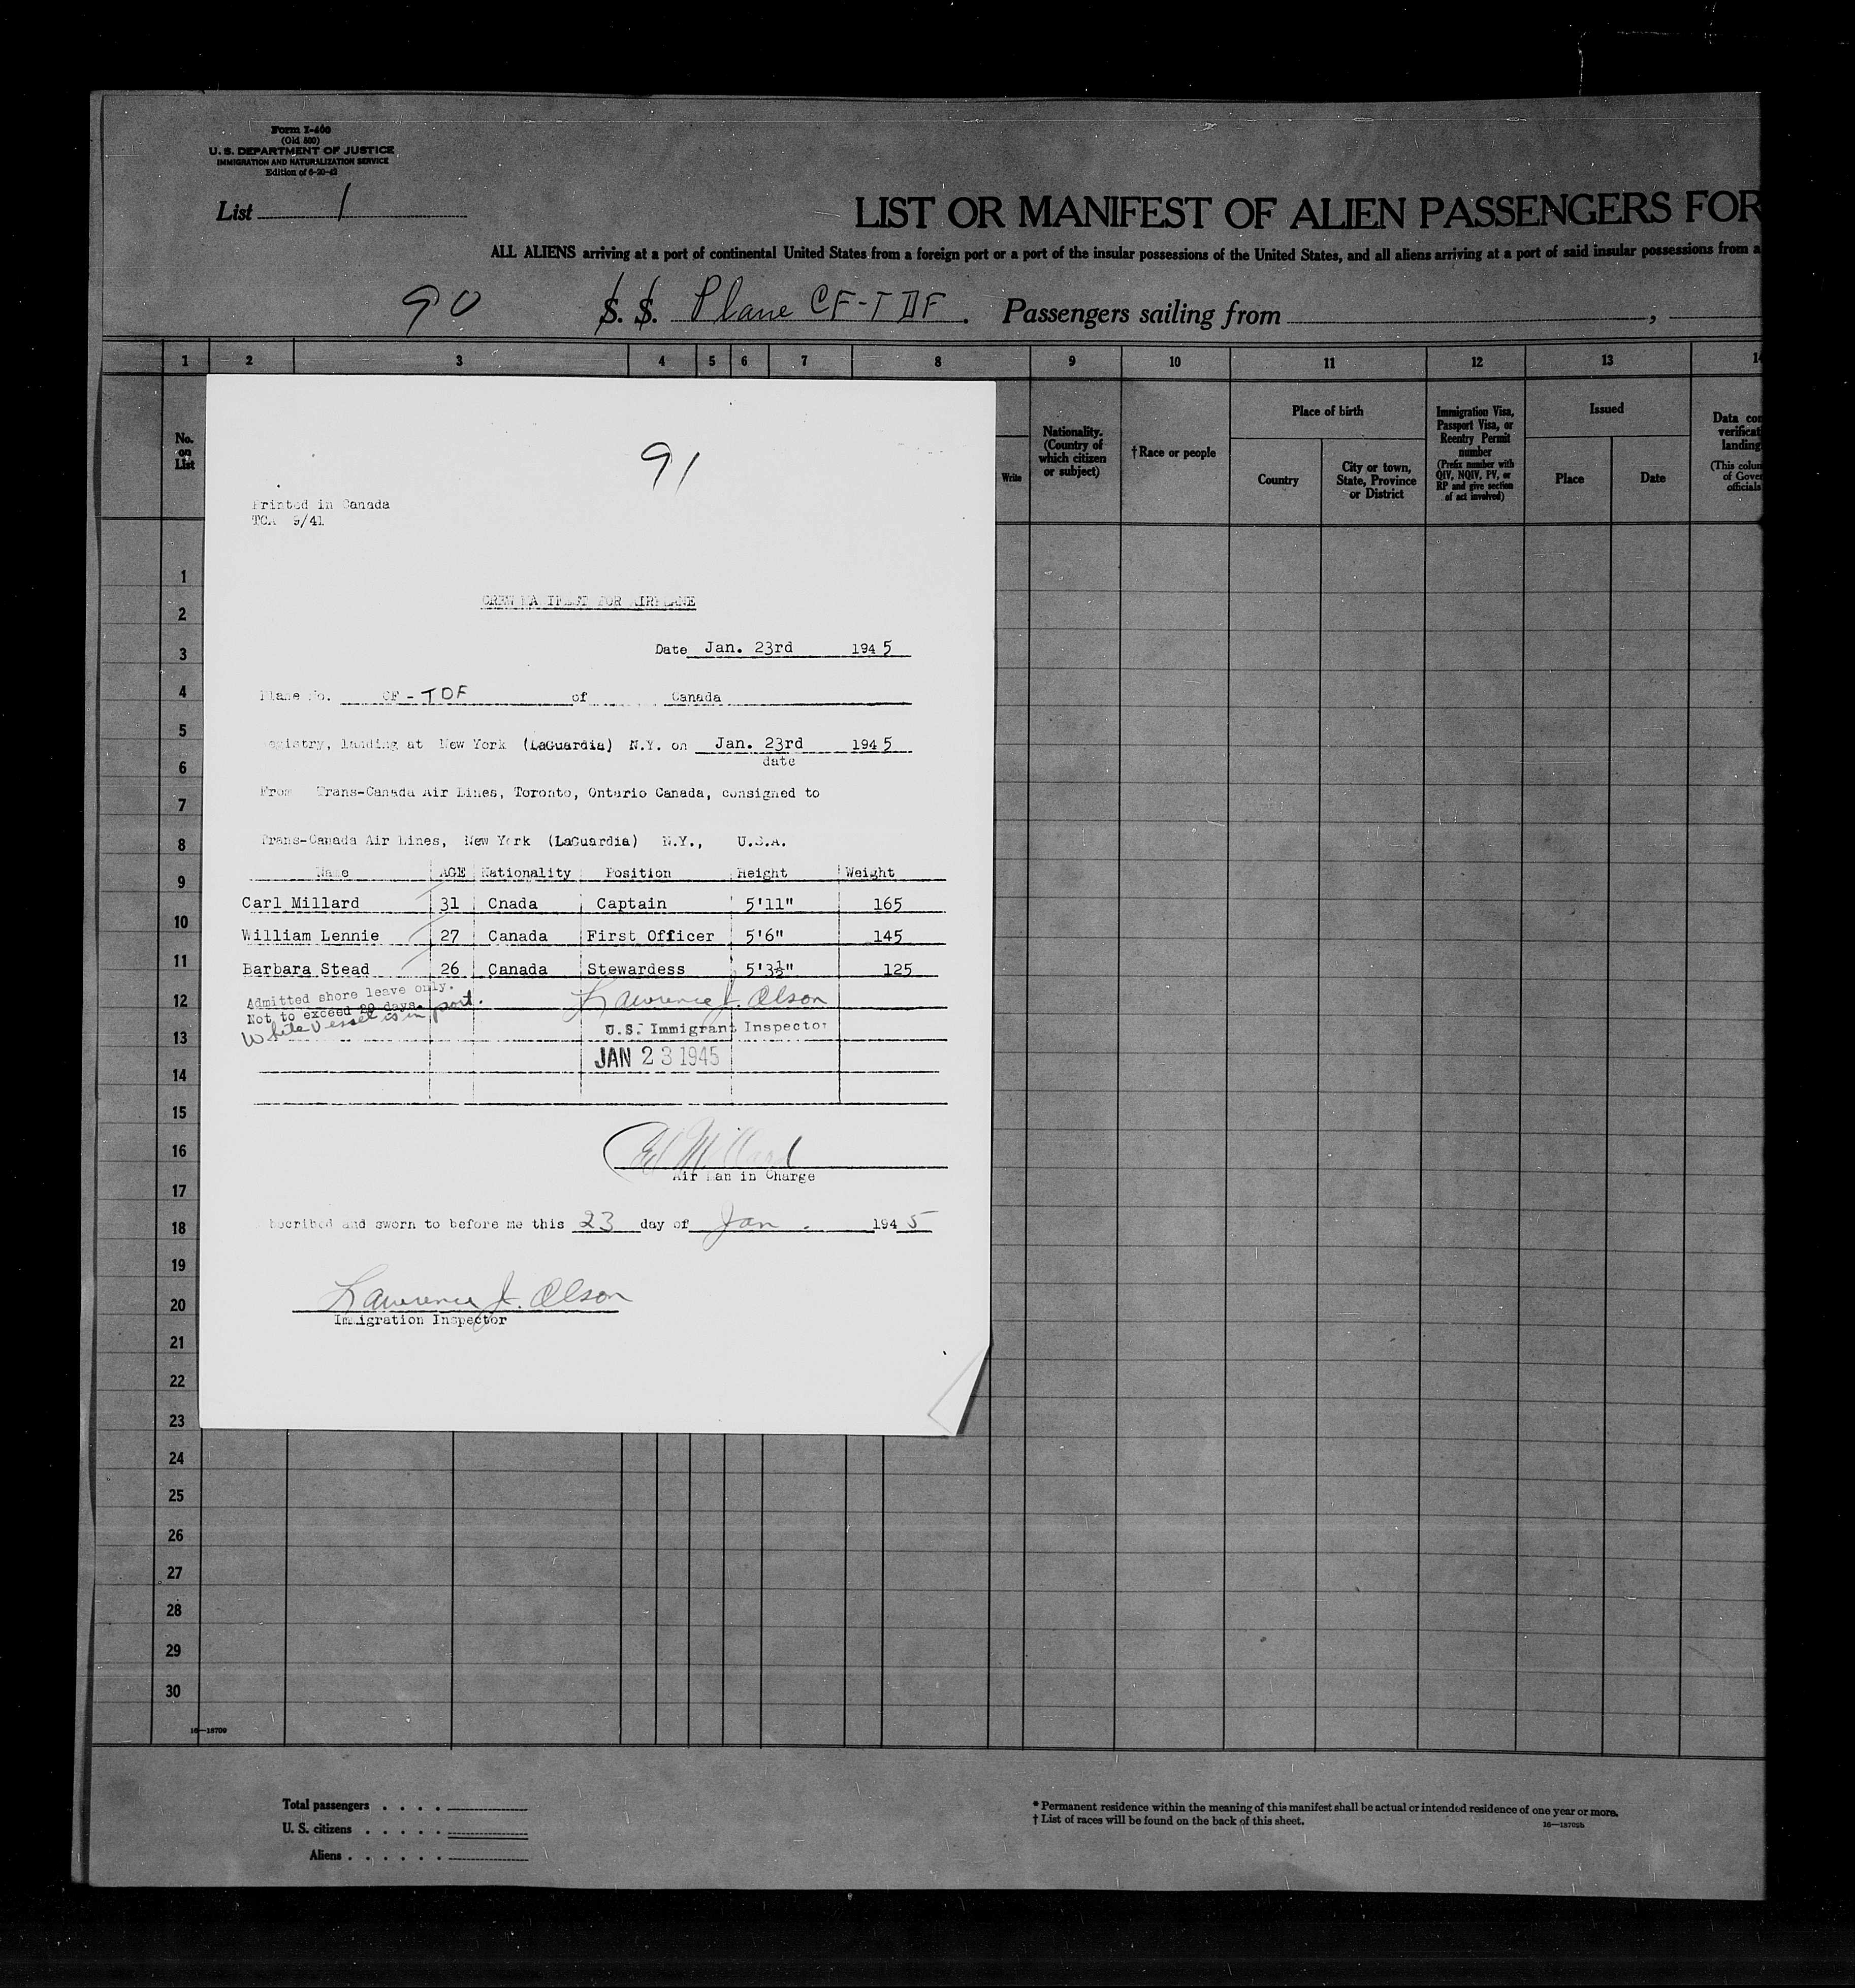 Form I-400
(Old 500)
U. S. DEPARTMENT OF JUSTICE
IMMIGRATION AND NATURALIZATION SERVICE
Edition of 6-20-42
List 1
LIST OR MANIFEST OF ALIEN PASSENGERS FOR
ALL ALIENS arriving at a port of continental United States from a foreign port or a port of the insular possessions of the United States, and all aliens arriving at a port of said insular possessions from a
90 S. S. Plane CF-TDF. Passengers sailing from ,
1 2 3 4 5 6 7 8 9 10 11 12 13 14
No. on List
Write
Nationality. (Country of which citizen or subject)
†Race or people
Place of birth
Country
City or town, State, Province or District
Immigration Visa, Passport Visa, or Reentry Permit number
(Prefix number with QIV, NQIV, PV, or RP and give section of act involved)
Issued
Place
Date
Data con
verificat
landing
(This colum
of Gover
officials
91
Printed in Canada
TCA 9/41
CREW MANIFEST FOR AIRPLANE
Date Jan. 23rd 1945
Plane No. CF-TDF of Canada
registry, landing at New York (LaGuardia) N.Y. on Jan. 23rd 1945
date
From Trans-Canada Air Lines, Toronto, Ontario Canada, consigned to
Trans-Canada Air Lines, New York (LaGuardia) N.Y., U.S.A.
Name AGE Nationality Position Height Weight
Carl Millard 31 Cnada Captain 5'11" 165
William Lennie 27 Canada First Officer 5'6" 145
Barbara Stead 26 Canada Stewardess 5'3½" 125
Admitted shore leave only.
Not to exceed 29 days.
While Vessel is in port.
Lawrence J. Olson
U.S. Immigrant Inspector
JAN 23 1945
Millard
Air Man in Charge
bscribed and sworn to before me this 23 day of Jan. 1945
Lawrence J. Olson
Immigration Inspector
1
2
3
4
5
6
7
8
9
10
11
12
13
14
15
16
17
18
19
20
21
22
23
24
25
26
27
28
29
30
16—18709
Total passengers . . . .
U. S. citizens . . . . .
Aliens . . . . . .
* Permanent residence within the meaning of this manifest shall be actual or intended residence of one year or more.
† List of races will be found on the back of this sheet.
16—18709b